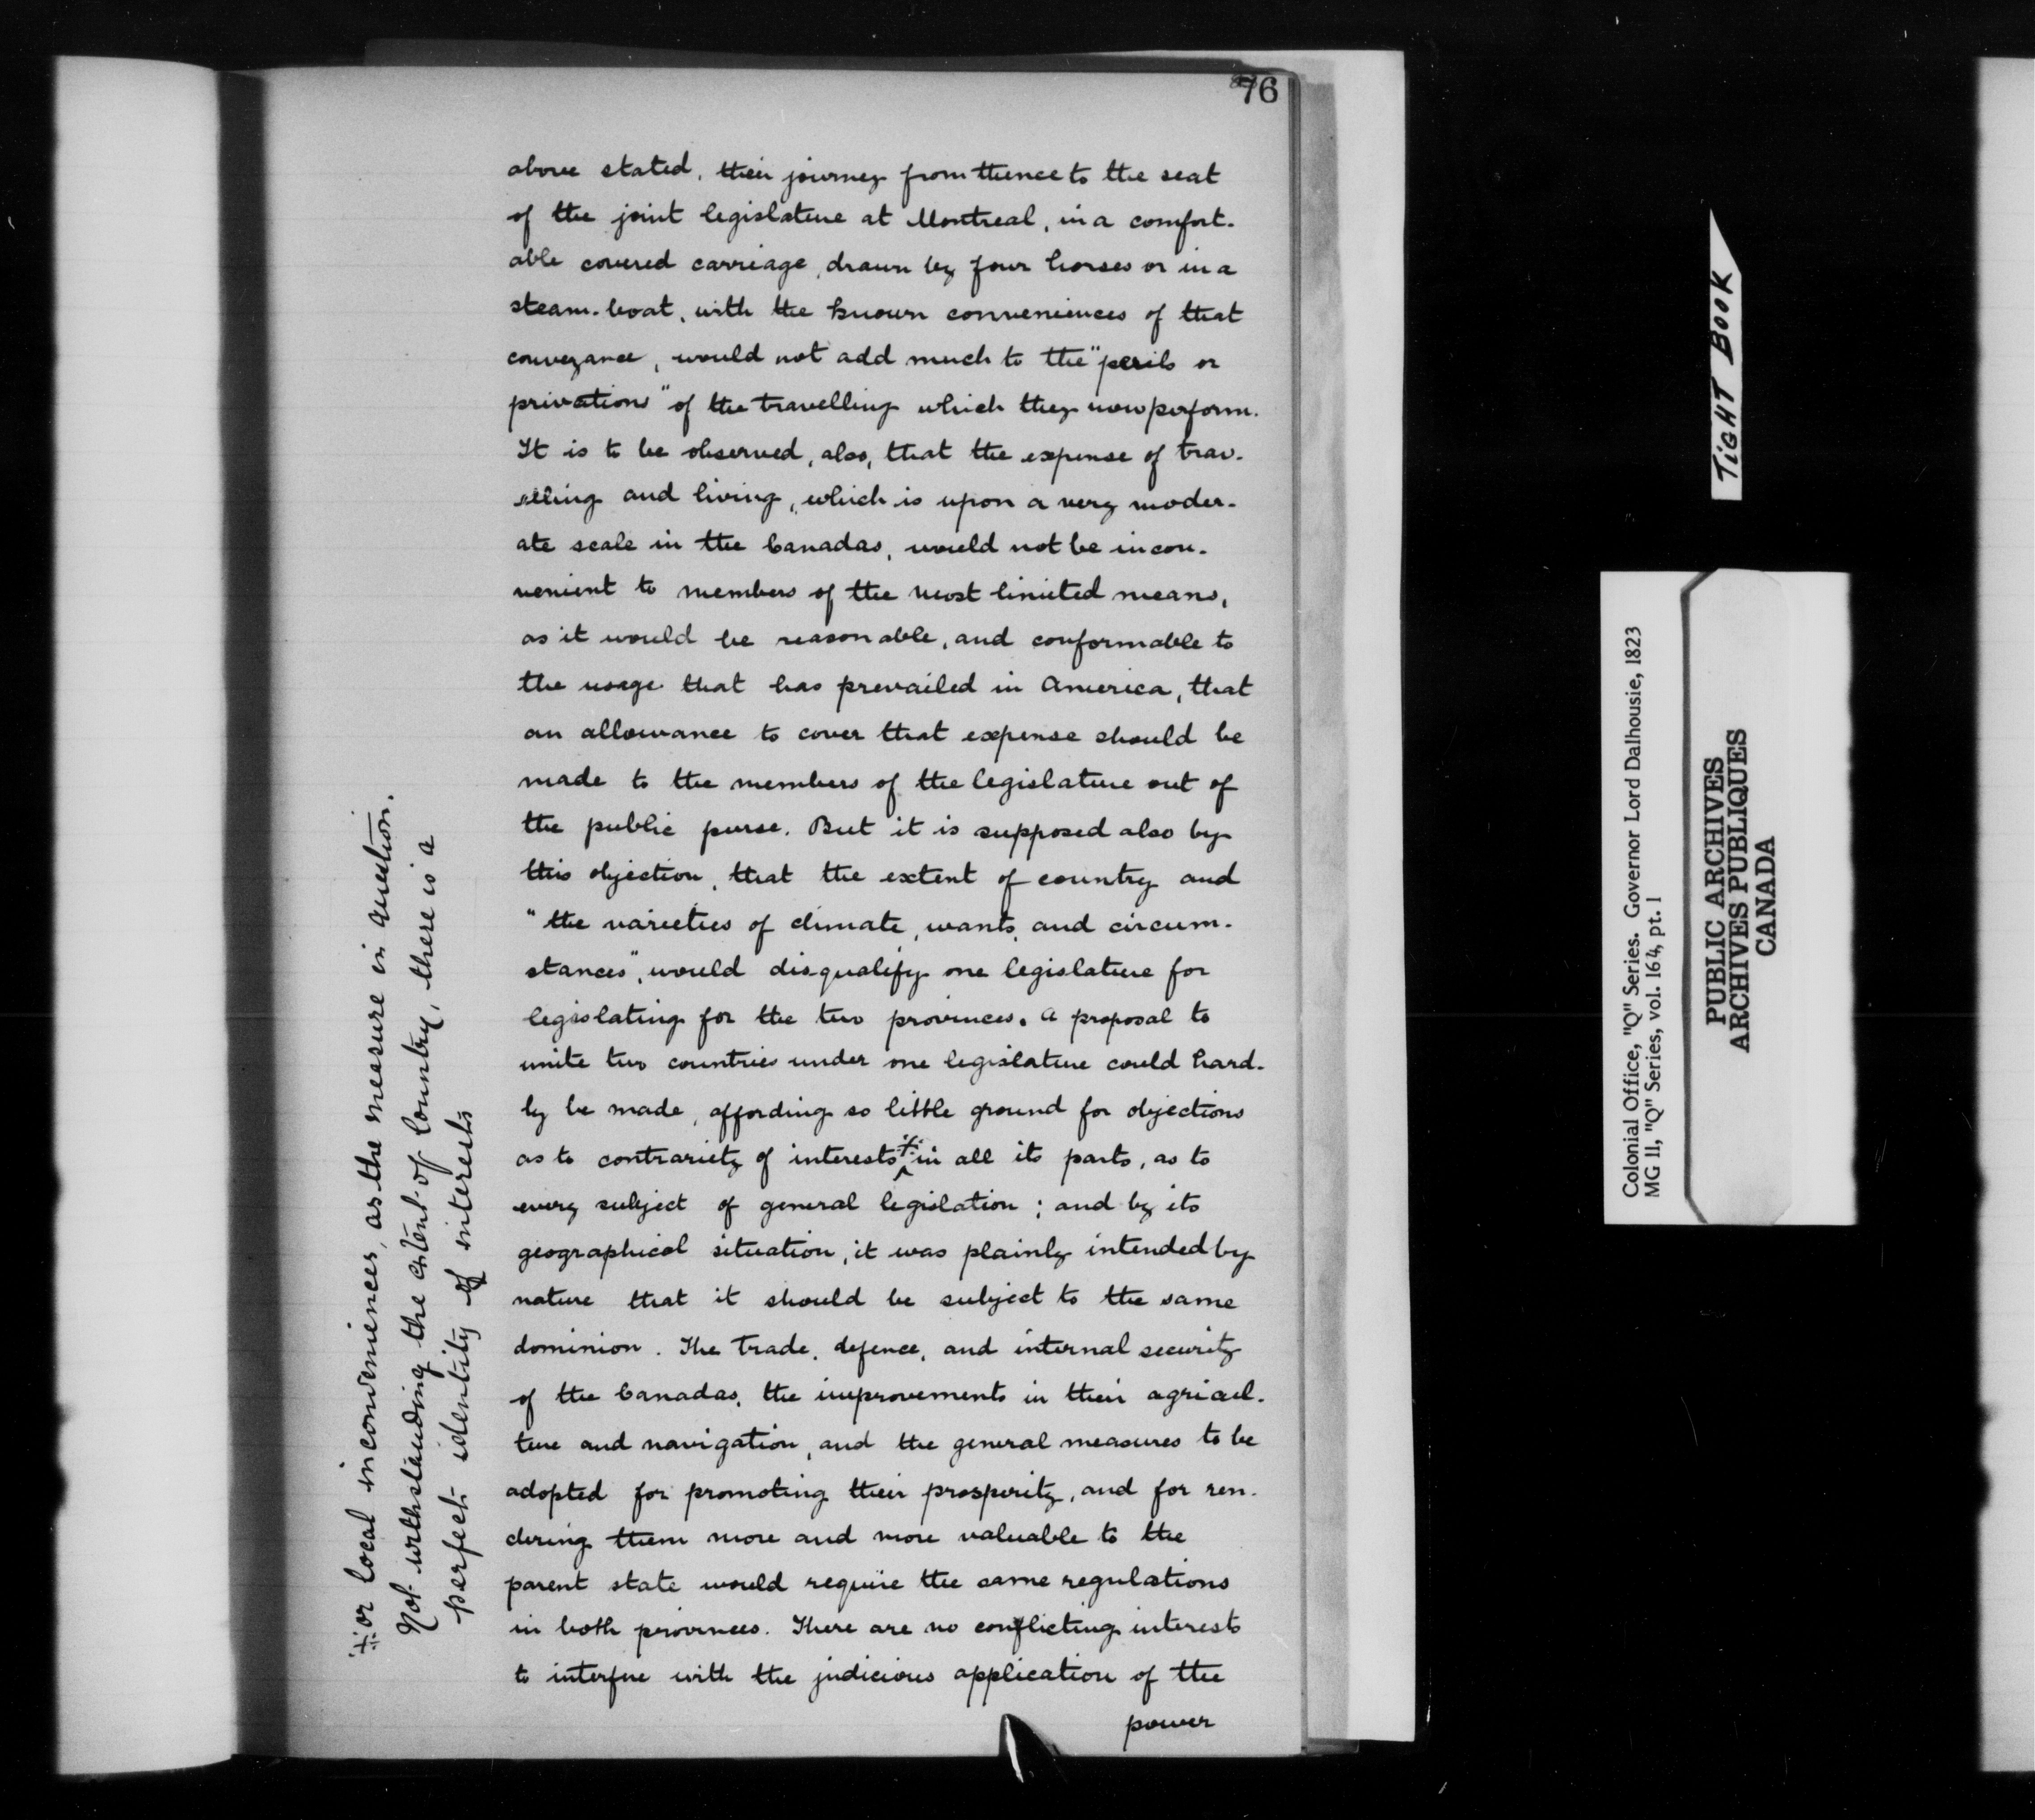 76
above stated, their journey from thence to the seat
of the joint legislature at Montreal, in a comfort-
able covered carriage, drawn by four horses or in a
steam-boat, with the known conveniences of that
conveyance, would not add much to the "perils or
privations" of the travelling which they now perform.
It is to be observed, also, that the expense of trav-
elling and living, which is upon a very moder-
ate scale in the Canadas, would not be incon-
venient to members of the most limited means,
as it would be reasonable, and conformable to
the usage that has prevailed in America, that
an allowance to cover that expense should be
made to the members of the legislature out of
the public purse. But it is supposed also by
this objection, that the extent of country and
"the varieties of climate, wants, and circum-
stances", would disqualify one legislature for
legislating for the two provinces. A proposal to
unite two countries under one legislature could hard-
ly be made, affording so little ground for objections
as to contrariety of interests ⁜ in all its parts, as to
every subject of general legislation; and by its
geographical situation, it was plainly intended by
nature that it should be subject to the same
dominion. The trade, defence, and internal security
of the Canadas, the improvements in their agricul-
ture and navigation, and the general measures to be
adopted for promoting their prosperity, and for ren-
dering them more and more valuable to the
parent state would require the same regulations
in both provinces. There are no conflicting interests
to interfere with the judicious application of the
power
⁜ or local inconveniences, as the measure in question.
Not withstanding the extent of Country, there is a
perfect identity of interests
TIGHT BOOK
Colonial Office, "Q" Series. Governor Lord Dalhousie, 1823
MG 11, "Q" Series, vol. 164, pt. 1
PUBLIC ARCHIVES
ARCHIVES PUBLIQUES
CANADA